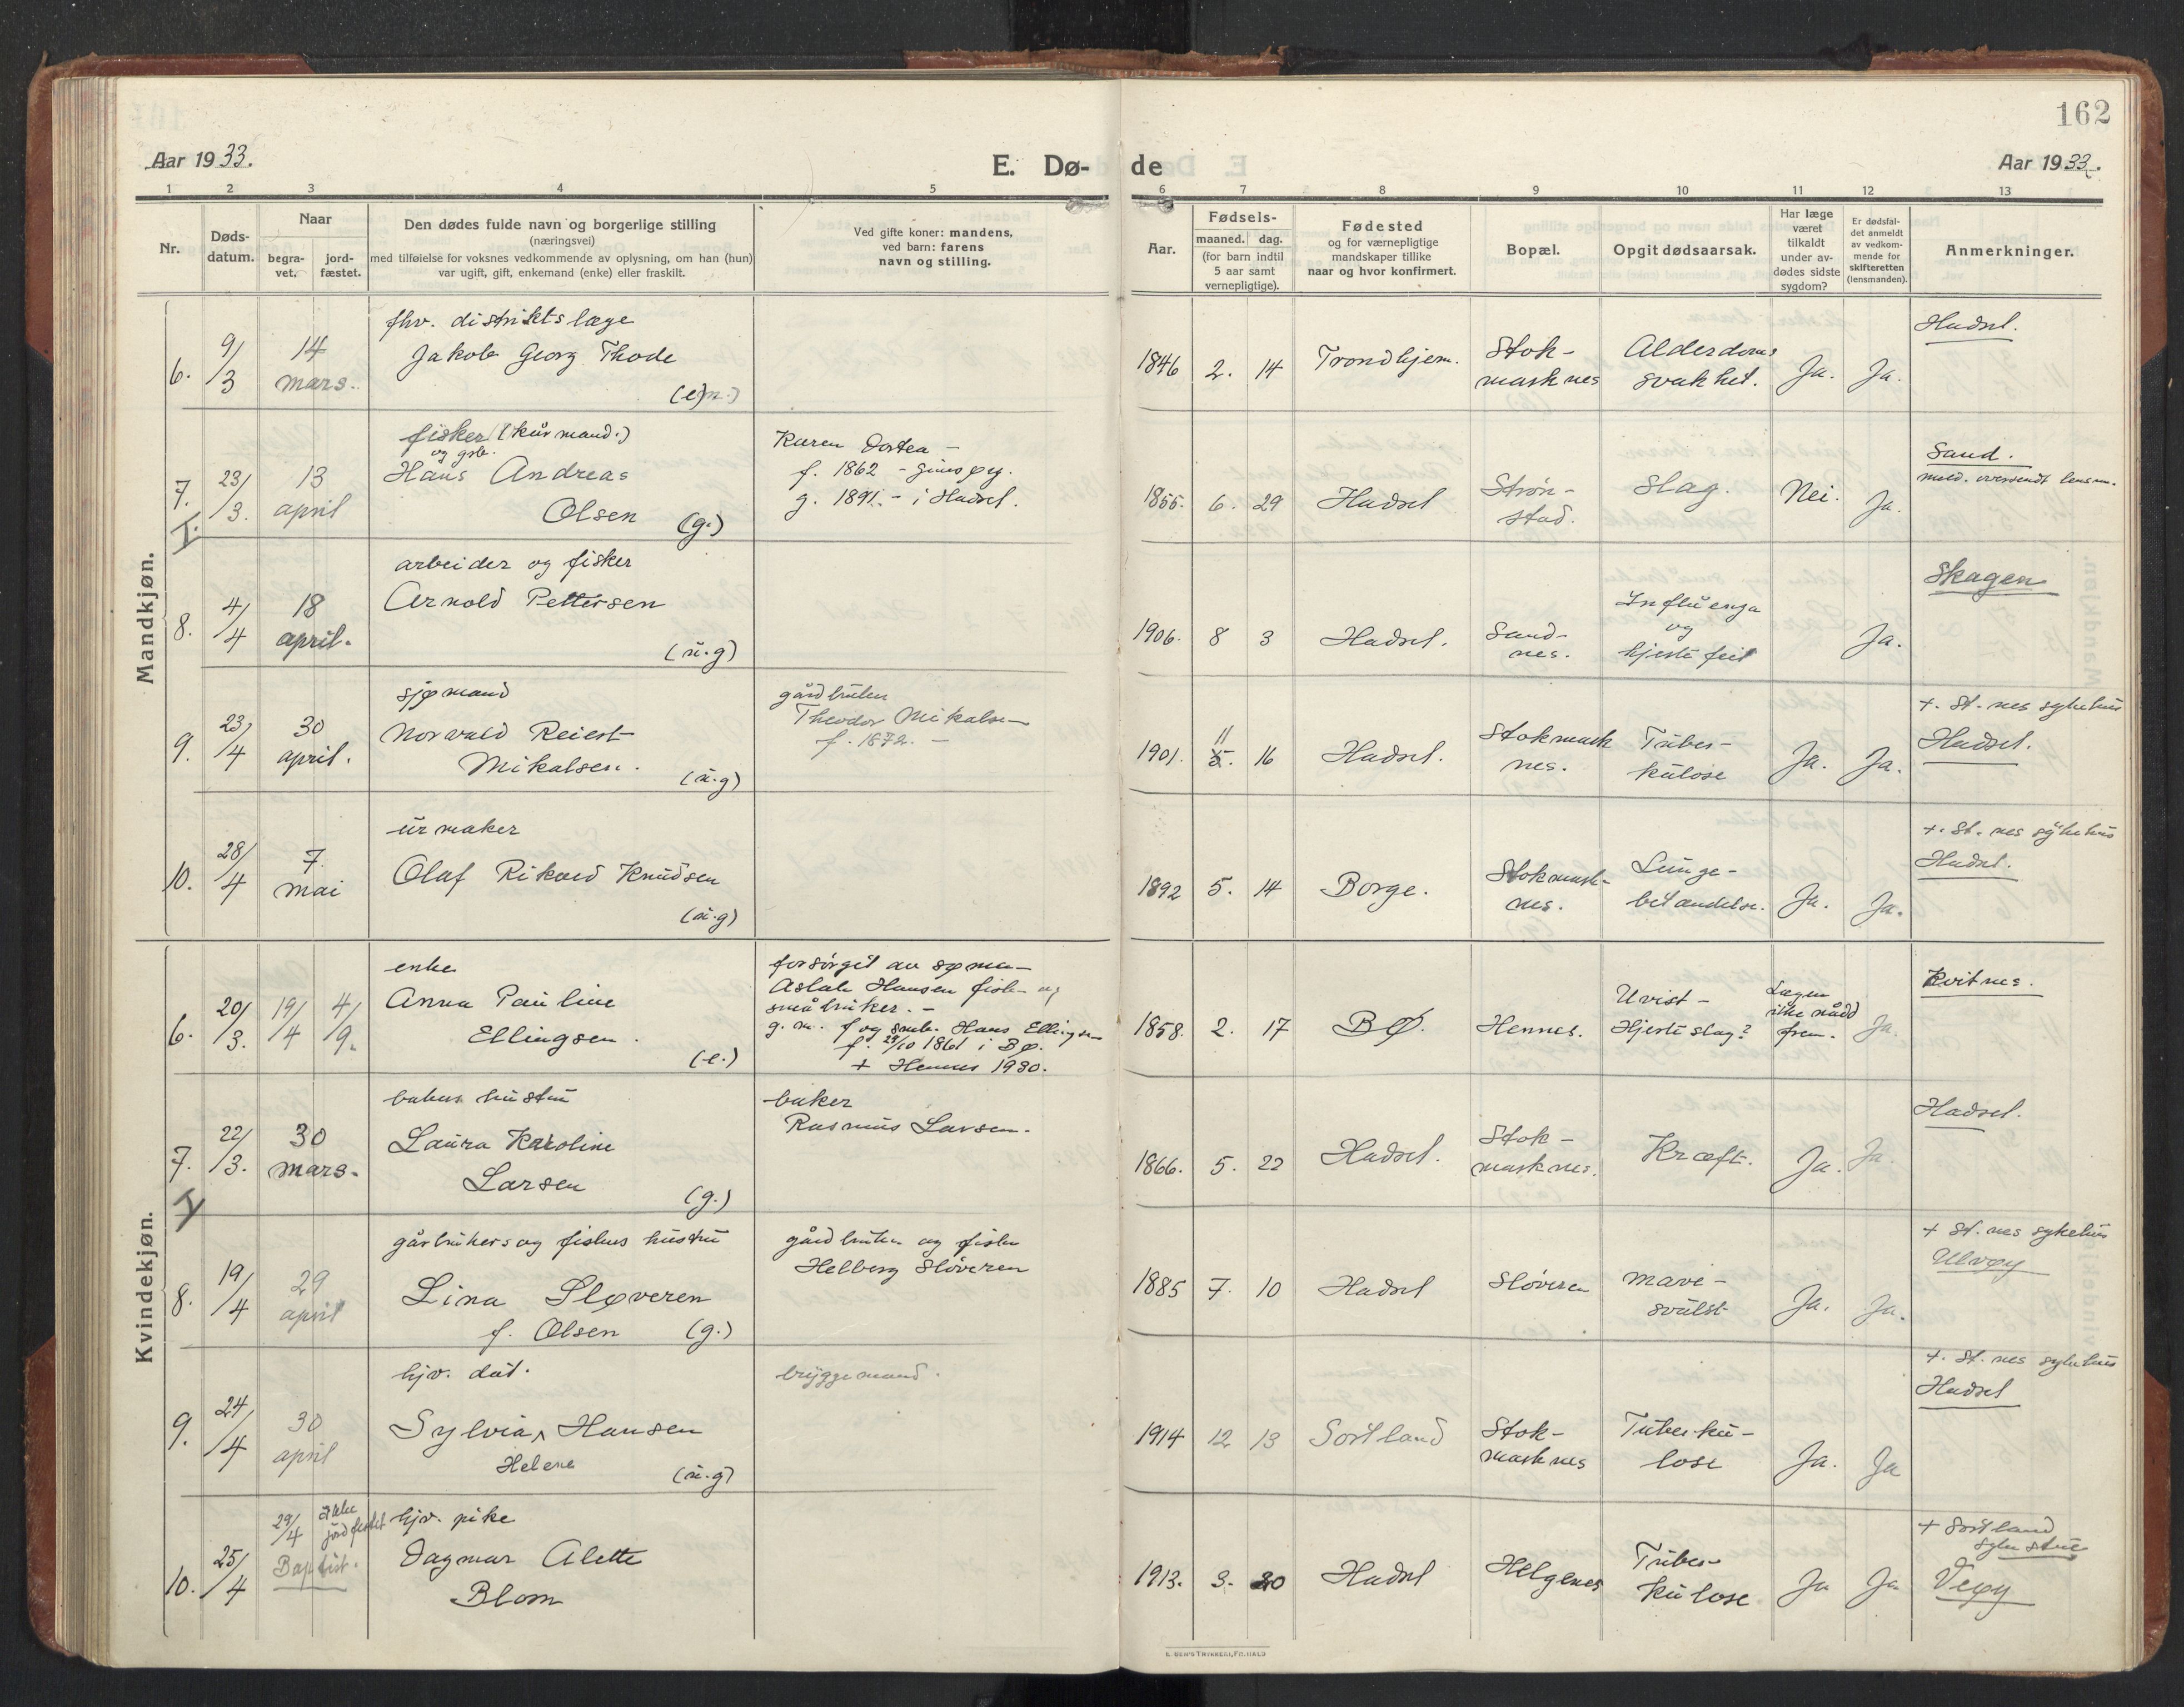 162
Aar 1933.
E. Dø- de
Aar 1933.
1 2 3 4 5 6 7 8 9 10 11 12 13
Nr.
Døds-
datum.
Naar
begra-
vet.
jord-
fæstet.
Den dødes fulde navn og borgerlige stilling
(næringsvei)
med tilføielse for voksnes vedkommende av oplysning, om han (hun)
var ugift, gift, enkemand (enke) eller fraskilt.
Ved gifte koner: mandens,
ved barn: farens
navn og stilling.
Aar.
Fødsels-
maaned. dag.
(for barn indtil
5 aar samt
vernepligtige).
Fødested
og for værnepligtige
mandskaper tillike
naar og hvor konfirmert.
Bopæl.
Opgit dødsaarsak.
Har læge
været
tilkaldt
under av-
dødes sidste
sygdom?
Er dødsfal-
det anmeldt
av vedkom-
mende for
skifteretten
(lensmanden).
Anmerkninger.
Mandkjøn.
6.
9/3
14
mars.
fhv. distriktslæge
Jakob Georg Thode
(e.m.)
1846
2. 14
Trondhjem.
Stok-
marknes
Alderdoms
svakhet.
Ja.
Ja.
Hadsel.
7.
23/3.
13
april
fisker (kårmand.)
og gsb.
Hans Andreas
Olsen (g.)
Karen Dortea -
f. 1862 - Gimsøy.
g. 1891. - i Hadsel.
1855.
6. 29
Hadsel
Strøn-
stad.
Slag.
Nei.
Ja.
Sand.
meld. oversendt lensm.
8.
4/4
18
april.
arbeider og fisker
Arnold Pettersen
(u.g)
1906.
8 3
Hadsel.
Sand-
nes.
Influenza
og
hjertefeil
Ja.
Skagen
9.
23/4
30
april.
sjømand
Norvald Reiert
Mikalsen.
(u.g)
gårdbruker
Theodor Mikalsen
f. 1872. -
1901.
11
5. 16
Hadsel.
Stokmark
nes.
Tuber-
kulose
Ja.
Ja.
+. St. nes sykehus
Hadsel.
10.
28/4
7.
mai
urmaker
Olaf Rikard Knudsen
(u.g)
1892
5. 14
Borge.
Stokmark-
nes.
Lunge-
betændelse.
Ja.
Ja.
+. St. nes sykehus
Hadsel.
Kvindekjøn.
6.
20/3.
19/4
4/9.
enke
Anna Pauline
Ellingsen.
(e.)
forsørget av sønnen
Aslak Hansen fisker og
småbruker. -
g. m. f og småb. Hans Ellingsen
f. 23/10 1861 i Bø.
+ Hennes 1930.
1858.
2. 17
BØ.
Hennes.
Uvist -
Hjerteslag?
Lægen
ikke nådd
frem.
Ja.
Kvitnes.
7.
22/3.
30
mars.
bakers hustru
Laura Karoline
Larsen
(g.)
baker
Rasmus Larsen.
1866.
5. 22
Hadsel.
Stok-
marknes.
Kræft.
Ja.
Ja.
Hadsel.
8.
19/4
29
april
gårbrukers og fiskers hustru
Lina Sløveren
f. Olsen (g.)
gårdbruker og fisker
Helberg Sløveren
1885
7. 10
Hadsel
Sløveren
mave-
svulst
Ja.
Ja.
+ St. nes sykehus
Ulvøy
9.
24/4
30
april
hjv. dat.
Sylvia ^ Hansen
Helene
(u.g)
bryggemand.
1914
12 13
Sortland
Stok-
marknes
Tuberku-
lose
Ja.
Ja
+. St. nes sykehus
Hadsel
10.
25/4
29/4
ikke
jordfestet
Baptist.
hjv. pike
Dagmar Alette
Blom
1913.
3. 20
Hadsel
Helgenes
Tuber-
kulose
Ja
Ja
+ Sortland
sykestue
Vegøy